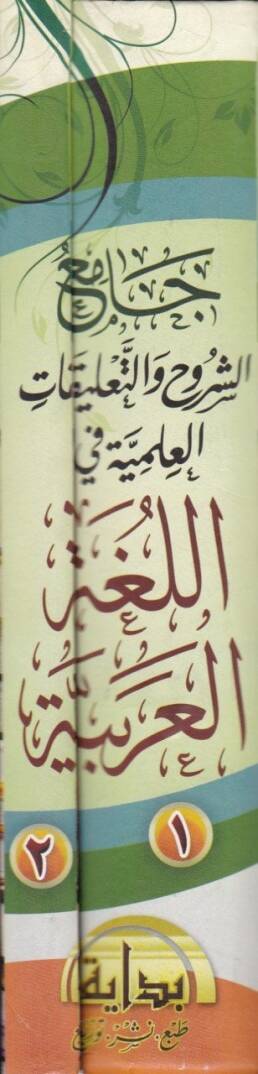 جَامِعُ
الشروح والتعليقات
العلمية في
اللغة
العربية
١
٢
بداية
طبع . نشر . توزيع